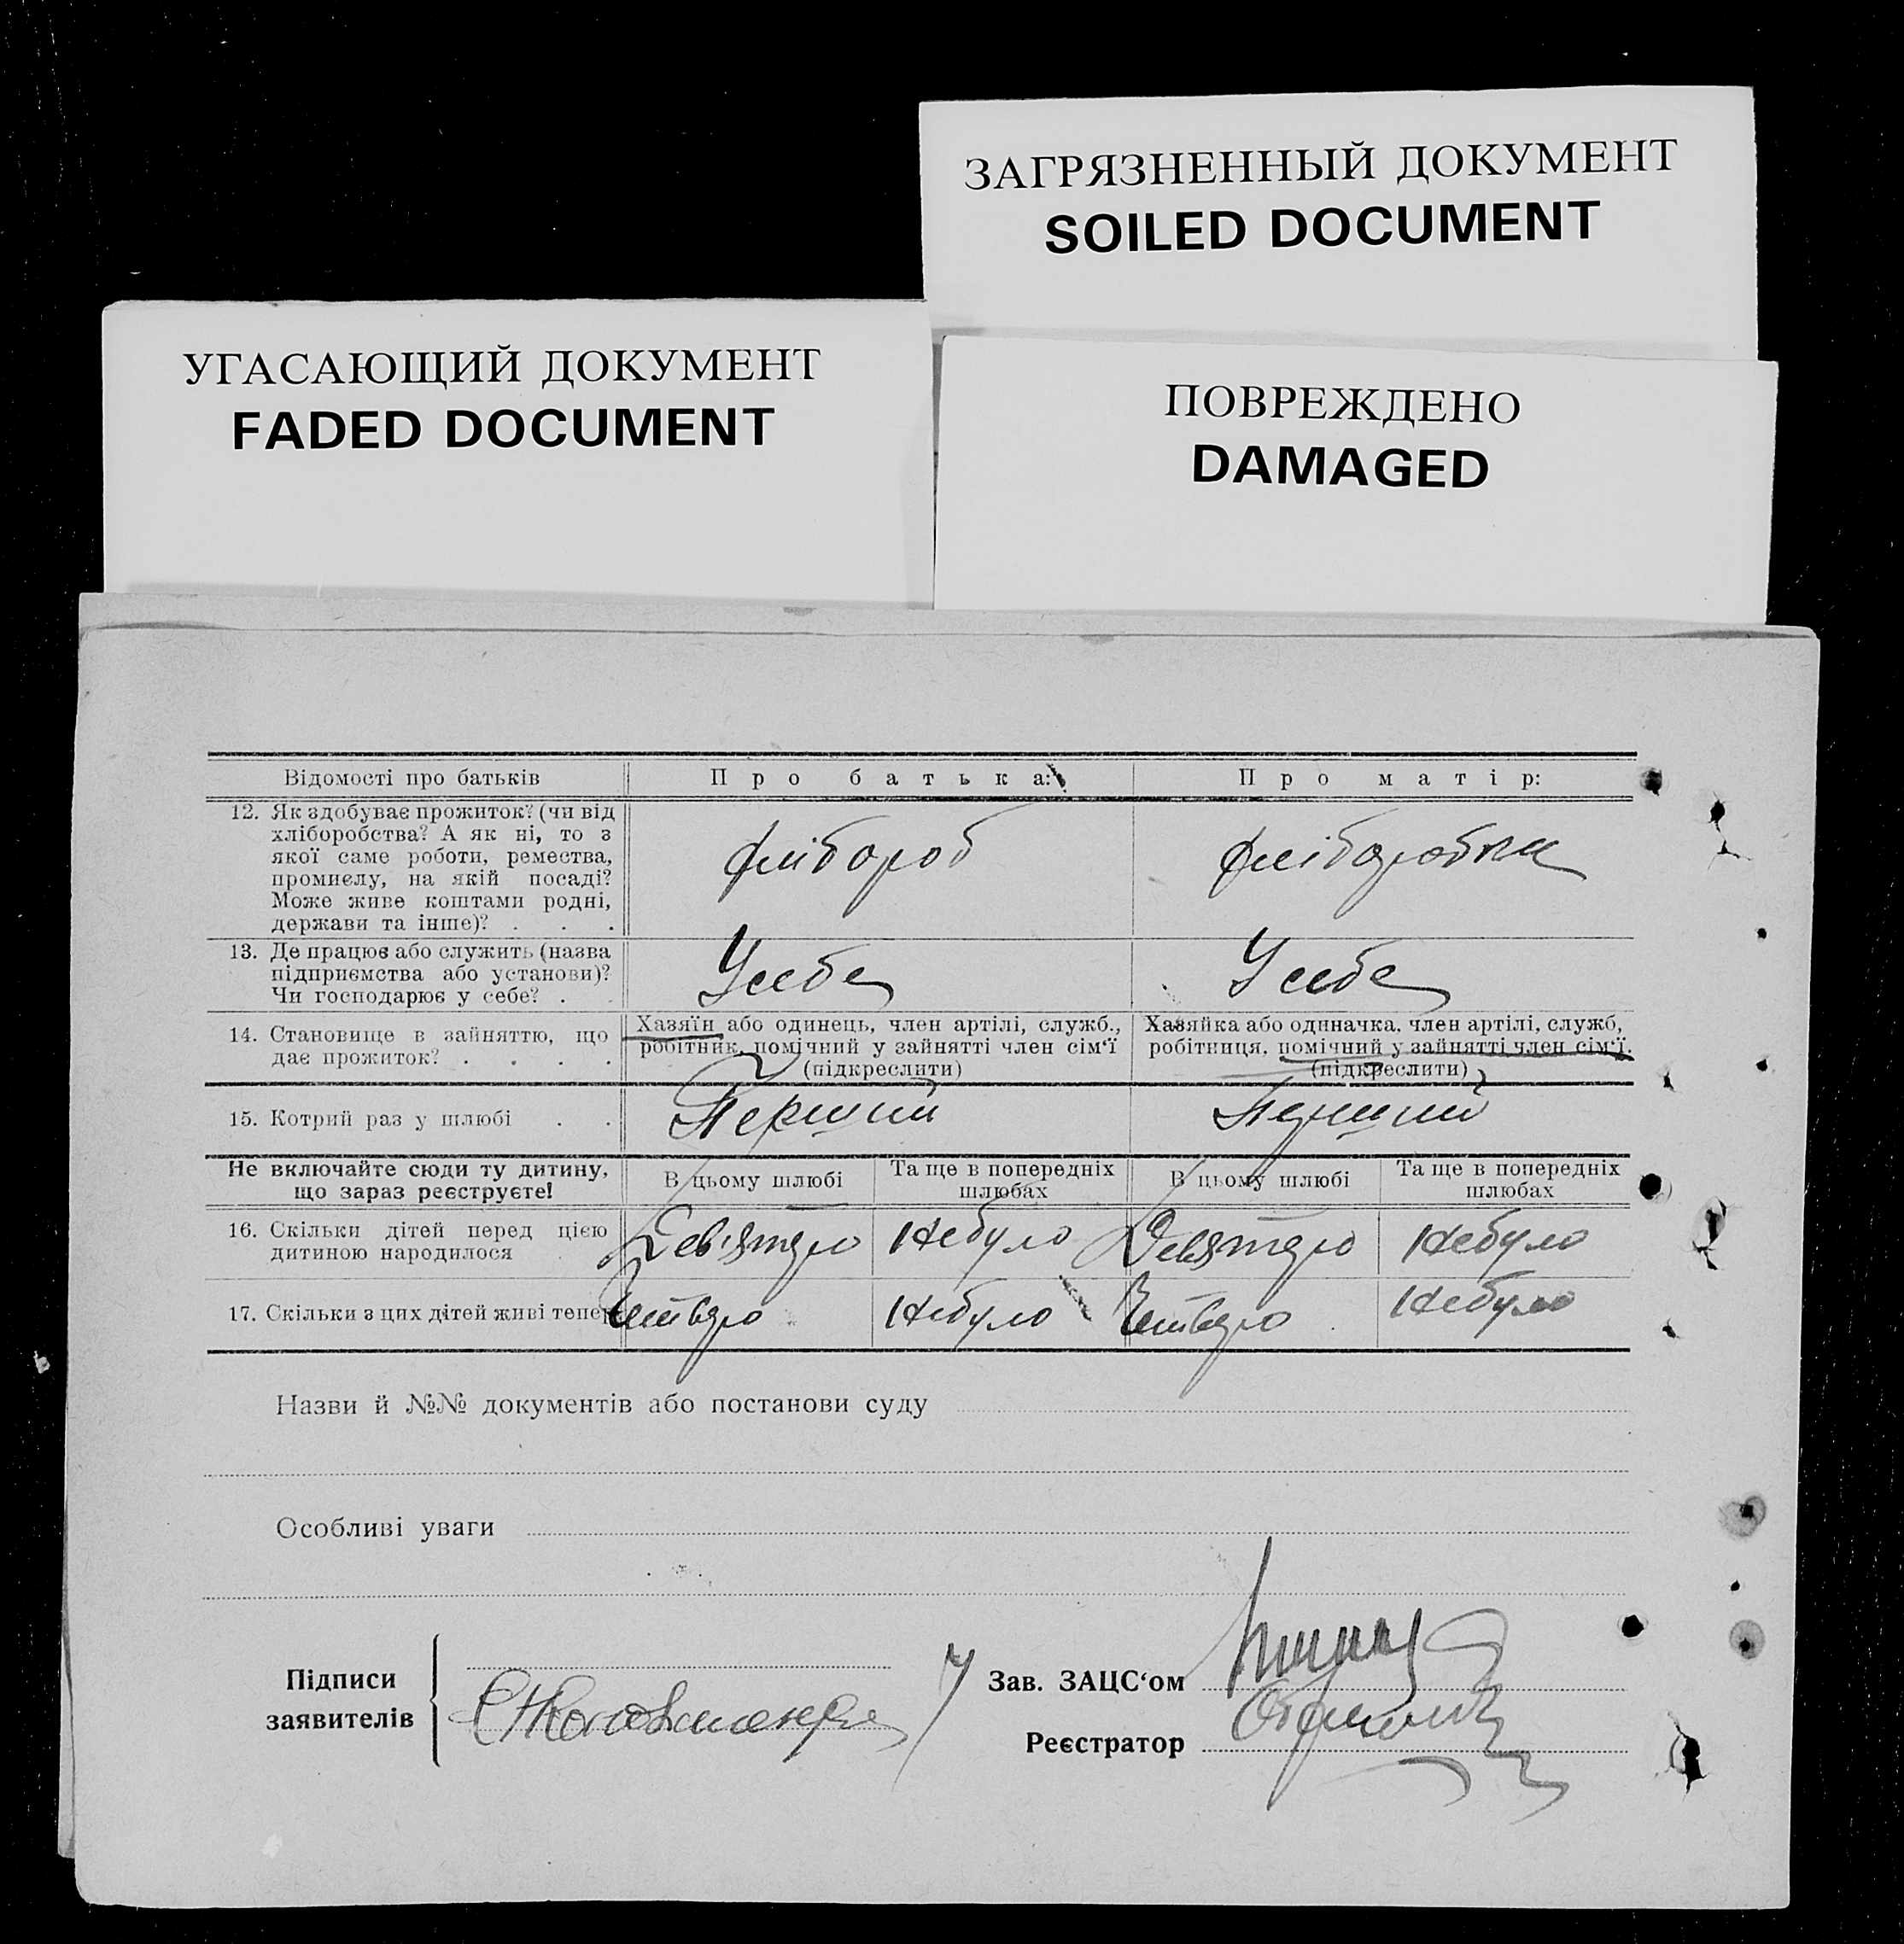 ЗАГРЯЗНЕННЫЙ ДОКУМЕНТ
SOILED DOCUMENT
УГАСАЮЩИЙ ДОКУМЕНТ
FADED DOCUMENT
ПОВРЕЖДЕНО
DAMAGED
Відомості про батьків
Про батька:
Про матір:
12. Як здобуває прожиток? (чи від
хліборобства? А як ні, то з
якої саме роботи, ремества,
промислу, на якій посаді?
Може живе коштами родні,
держави та інше)? . . .
хлібороб
хліборобка
13. Де працює або служить (назва
підприємства або установи)?
Чи господарює у себе? . .
У себе
У себе
14. Становище в зайняттю, що
дає прожиток? . . . .
Хазяїн або одинець, член артілі, служб.,
робітник, помічний у зайнятті член сім‘ї
(підкреслити)
Хазяйка або одиначка, член артілі, служб,
робітниця, помічний у зайнятті член сім‘ї.
(підкреслити)
15. Котрий раз у шлюбі . .
Перший
Перший
Не включайте сюди ту дитину,
що зараз реєструєте!
В цьому шлюбі
Та ще в попередніх
шлюбах
В цьому шлюбі
Та ще в попередніх
шлюбах
16. Скільки дітей перед цією
дитиною народилося
Дев'ятеро
Небуло
Девятеро
Небуло
17. Скільки з цих дітей живі тепер
Четверо
Небуло
Четверо
Небуло
Назви й №№ документів або постанови суду
Особливі уваги
Підписи
заявителів
Зав. ЗАЦС‘ом
Реєстратор